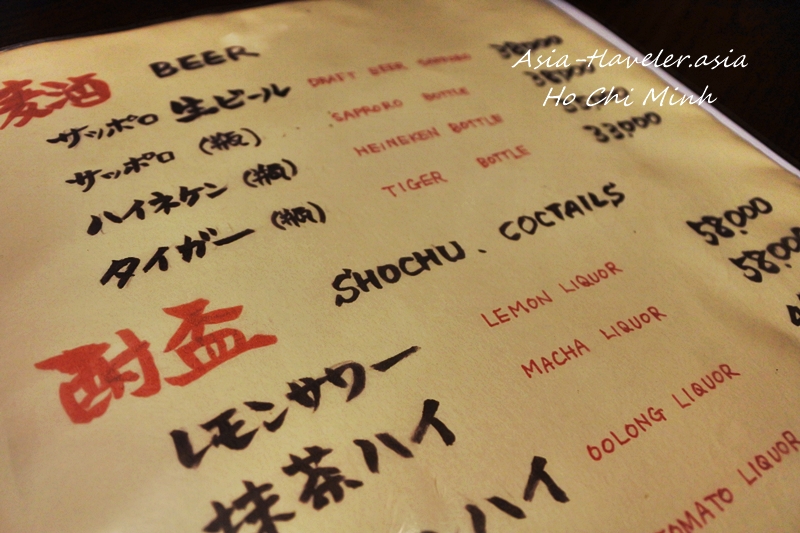 Asia-Traveler.asia
Ho Chi Minh
麦酒 BEER
サッポロ 生ビール DRAFT BEER SAPPORO 38,000
サッポロ (瓶) SAPPORO BOTTLE 38,000
ハイネケン (瓶) HEINEKEN BOTTLE
タイガー (瓶) TIGER BOTTLE 33,000
酎盃 SHOCHU、COCTAILS
レモンサワー LEMON LIQUOR 58,000
抹茶ハイ MACHA LIQUOR 58,000
ハイ OOLONG LIQUOR
TOMATO LIQUOR